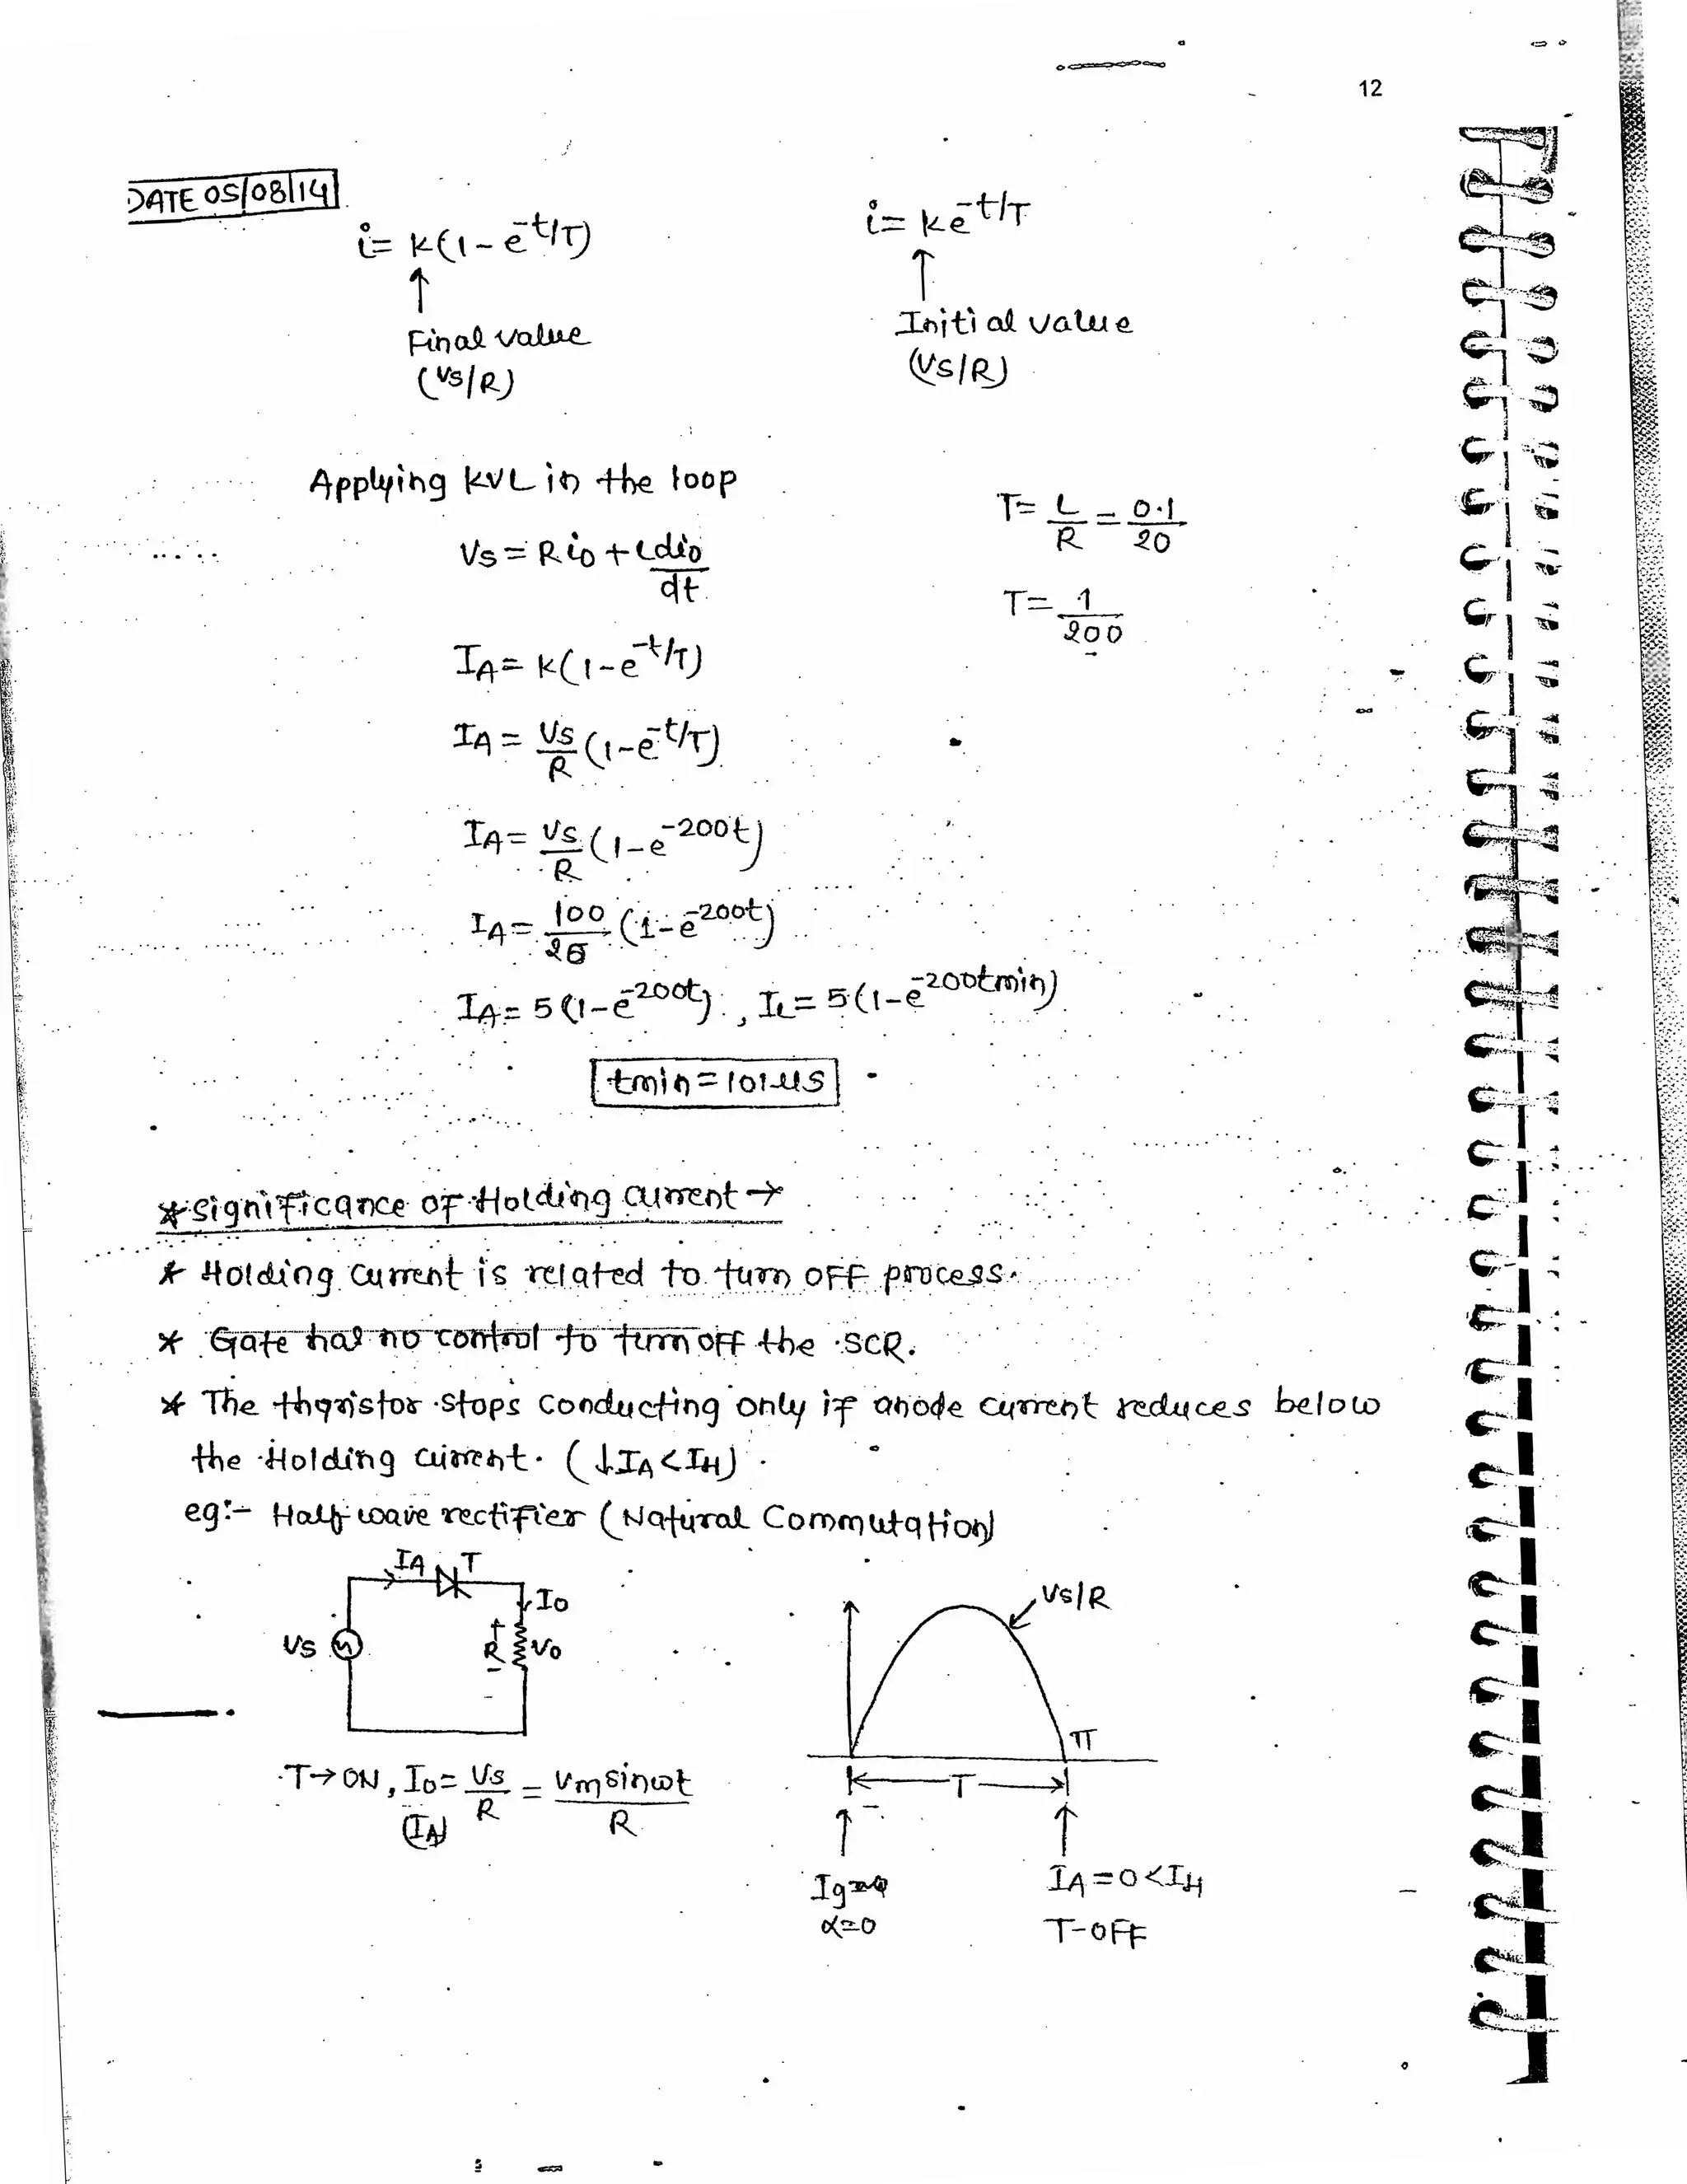 12
DATE 05/08/14
i = k(1 - e^-t/T)
i = ke^-t/T
↑
↑
Final value
Initial value
(Vs/R)
(Vs/R)
Applying KVL in the loop
Vs = R io + L dio/dt
T = L/R = 0.1/20
T = 1/200
IA = k(1-e^-t/T)
IA = Vs/R (1-e^-t/T)
IA = Vs/R (1-e^-200t)
IA = 100/20 (1-e^-200t)
IA = 5(1-e^-200t), IL = 5(1-e^-200tmin)
tmin = 101 μs
*Significance of Holding current →
* Holding current is related to turn OFF process.
* Gate has no control to turn off the SCR.
* The thyristor stops conducting only if anode current reduces below
the Holding current. (↓IA < IH).
eg:- Half wave rectifier (Natural Commutation)
IA T
Io
Vs
+
R Vo
-
Vs/R
π
T
T → ON, Io = Vs/R = Vm sinωt/R
(IA)
↑
↑
Ig
IA = 0 < IH
α=0
T-OFF